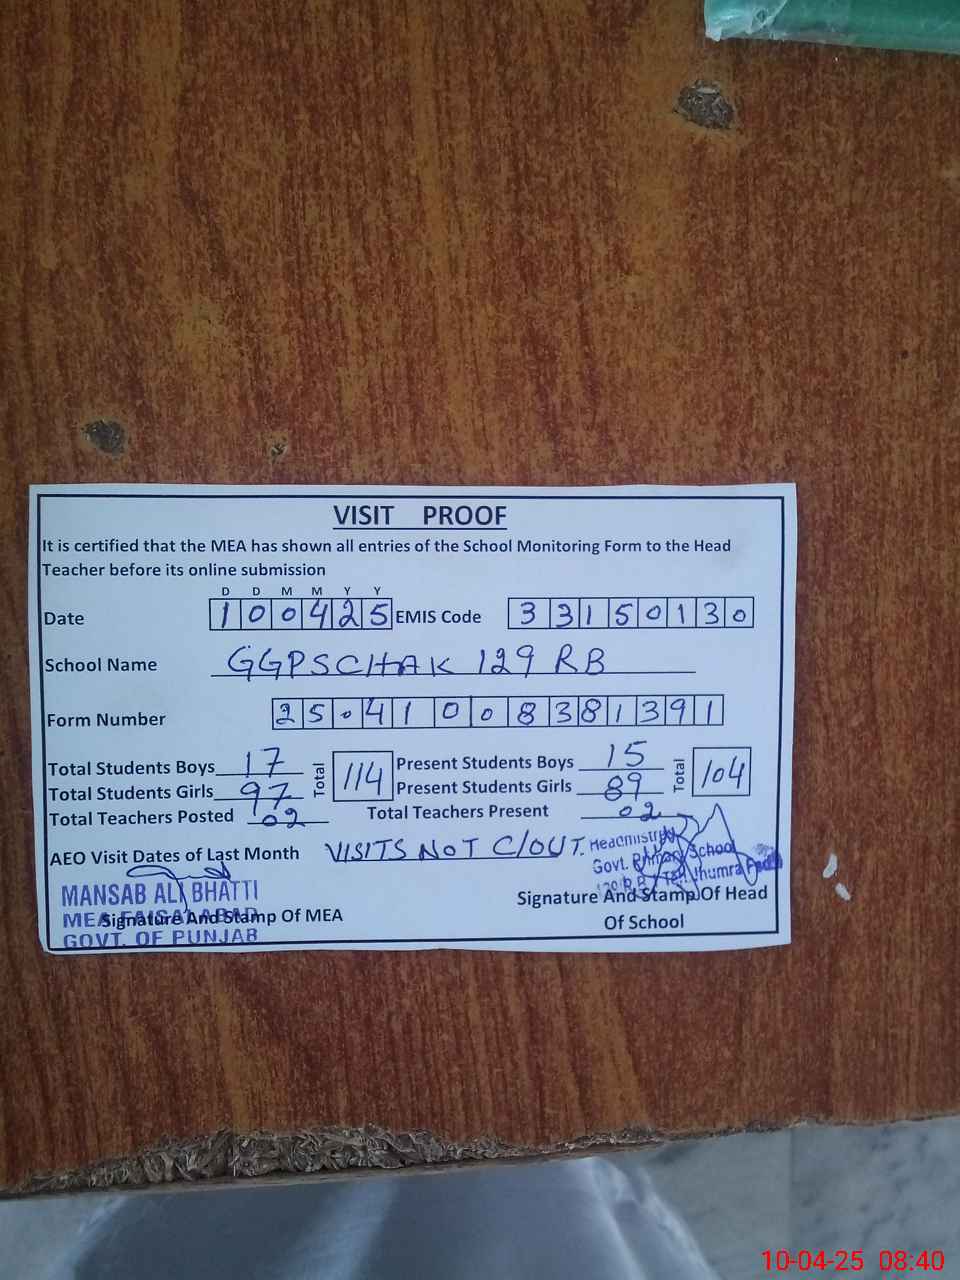 VISIT PROOF
It is certified that the MEA has shown all entries of the School Monitoring Form to the Head
Teacher before its online submission
D D M M Y Y
Date 100425 EMIS Code 33150130
School Name GGPSCHAK 129 RB
Form Number 25.41008381391
Total Students Boys 17 Total 114 Present Students Boys 15 Total 104
Total Students Girls 97 Present Students Girls 89
Total Teachers Posted 02 Total Teachers Present 02
AEO Visit Dates of Last Month VISITS NOT C/OUT.
Headmistress
Govt. Primary School
129 R.B Teh. Jhumra
MANSAB ALI BHATTI
MEA FAISALABAD
GOVT. OF PUNJAB
Signature And Stamp Of MEA
Signature And Stamp Of Head
Of School
10-04-25 08:40